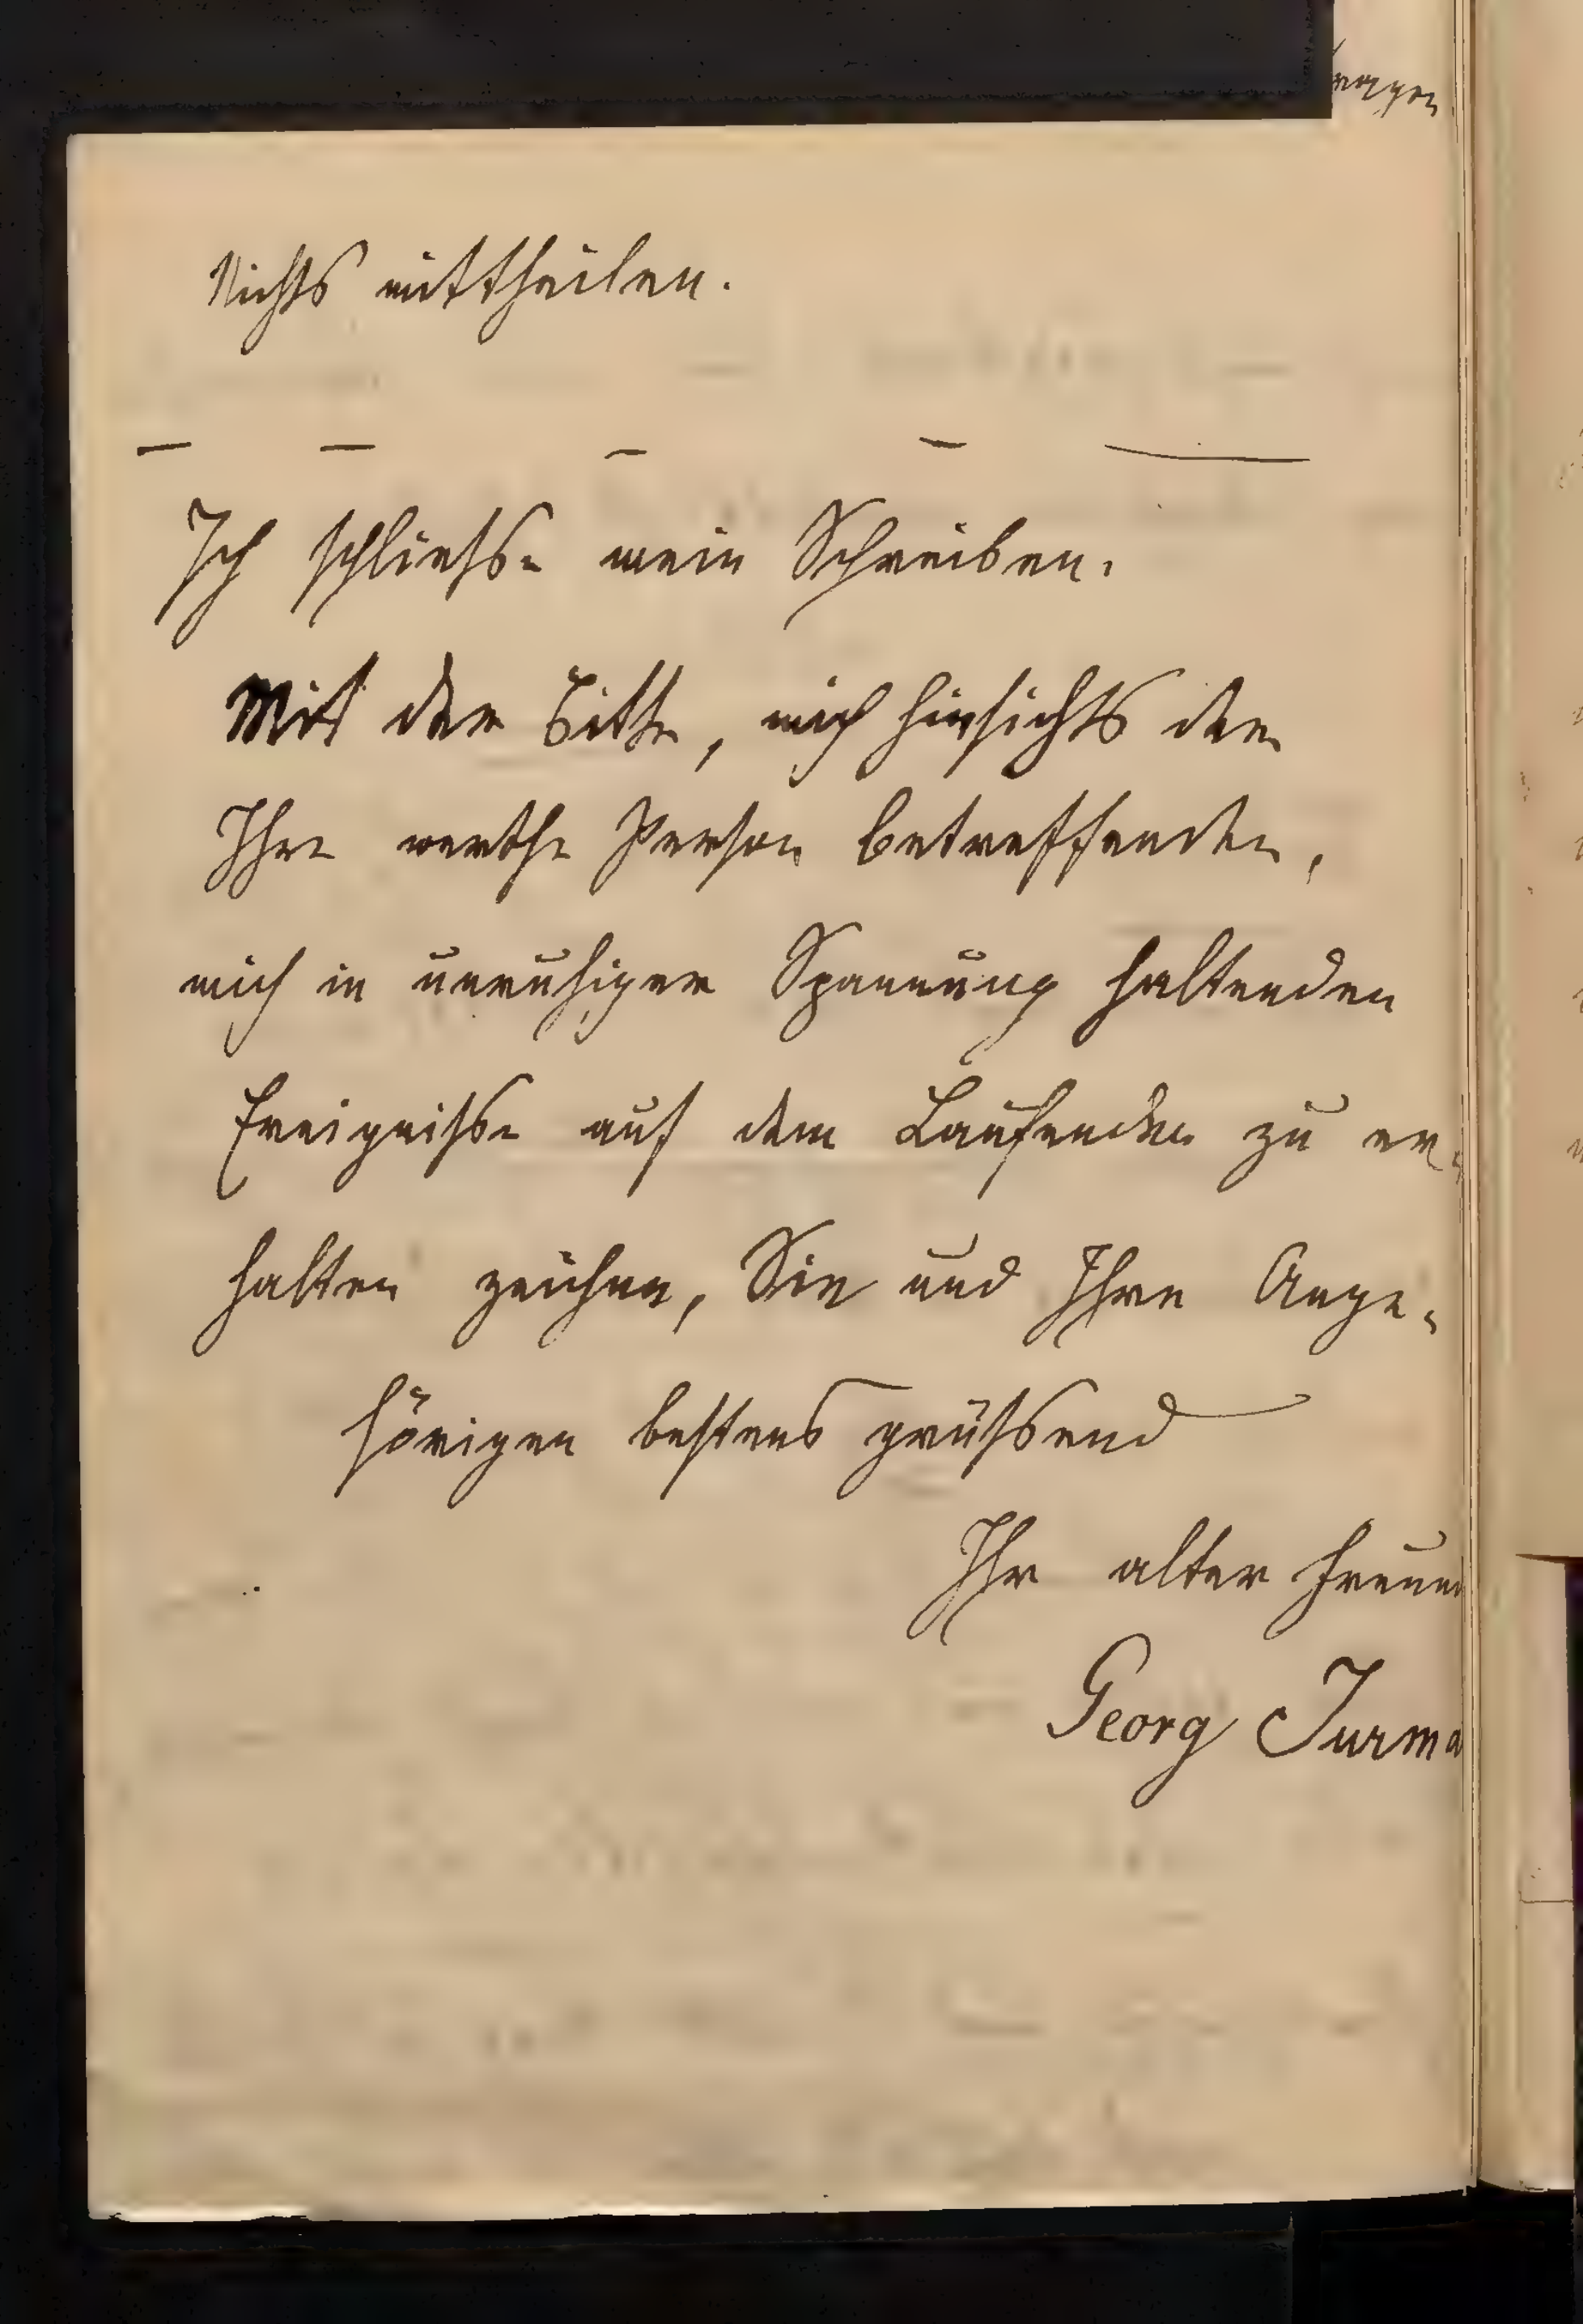 Nichts mittheilen.
— — — — —
Ich schliesse mein Schreiben.
Mit der Bitte, mich hinsichts der
Ihre werthe Person betreffenden,
mich in unruhiger Spannung haltenden
Ereignisse auf dem Laufenden zu er-
halten zeichne, Sie und Ihre Ange-
hörigen bestens grüssend
Ihr alter Freun
Georg Jurma